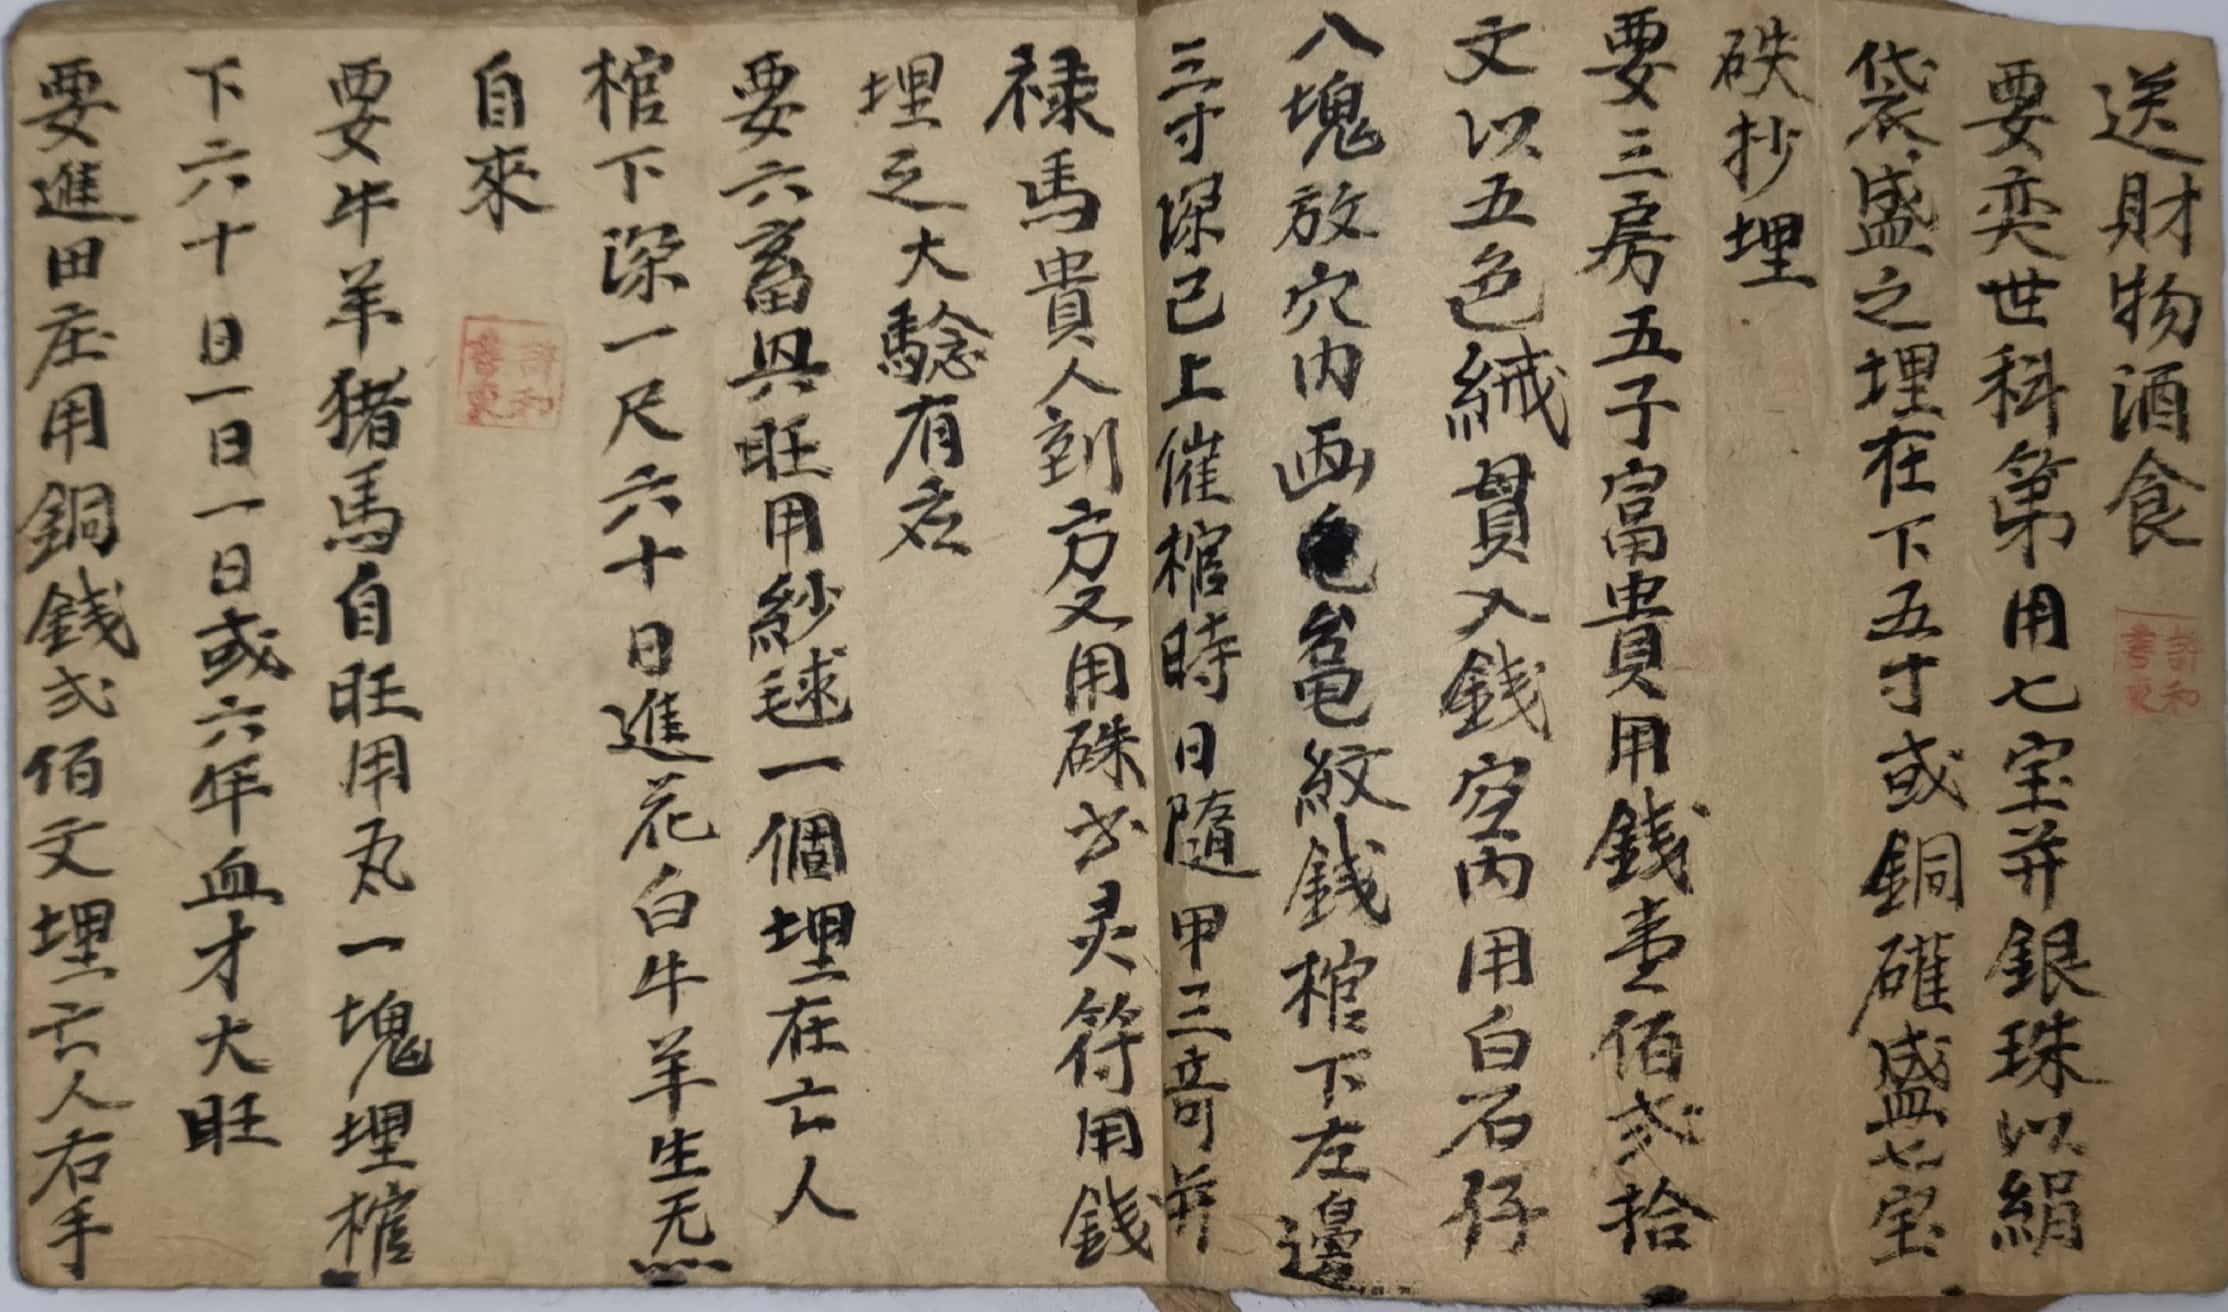 送財物酒食
要奕世科第用七宝并銀珠以絹
袋盛之埋在下五寸或銅礶盛七宝
砄抄埋
要三房五子富貴用錢壹佰弍拾
文以五色絨貫入錢空內用白石仔
八塊放穴內画龟紋錢棺下左邊
三寸深己上催棺時日隨甲三竒并
祿馬貴人到方又用硃书灵符用錢
埋之大騐有应
要六畜興旺用紗毬一個埋在亡人
棺下深一尺六十日進花白牛羊生炁
自來
要牛羊猪馬自旺用丸一塊埋棺
下六十日一日一日或六年血才大旺
要進田庄用銅錢弍佰文埋亡人右手